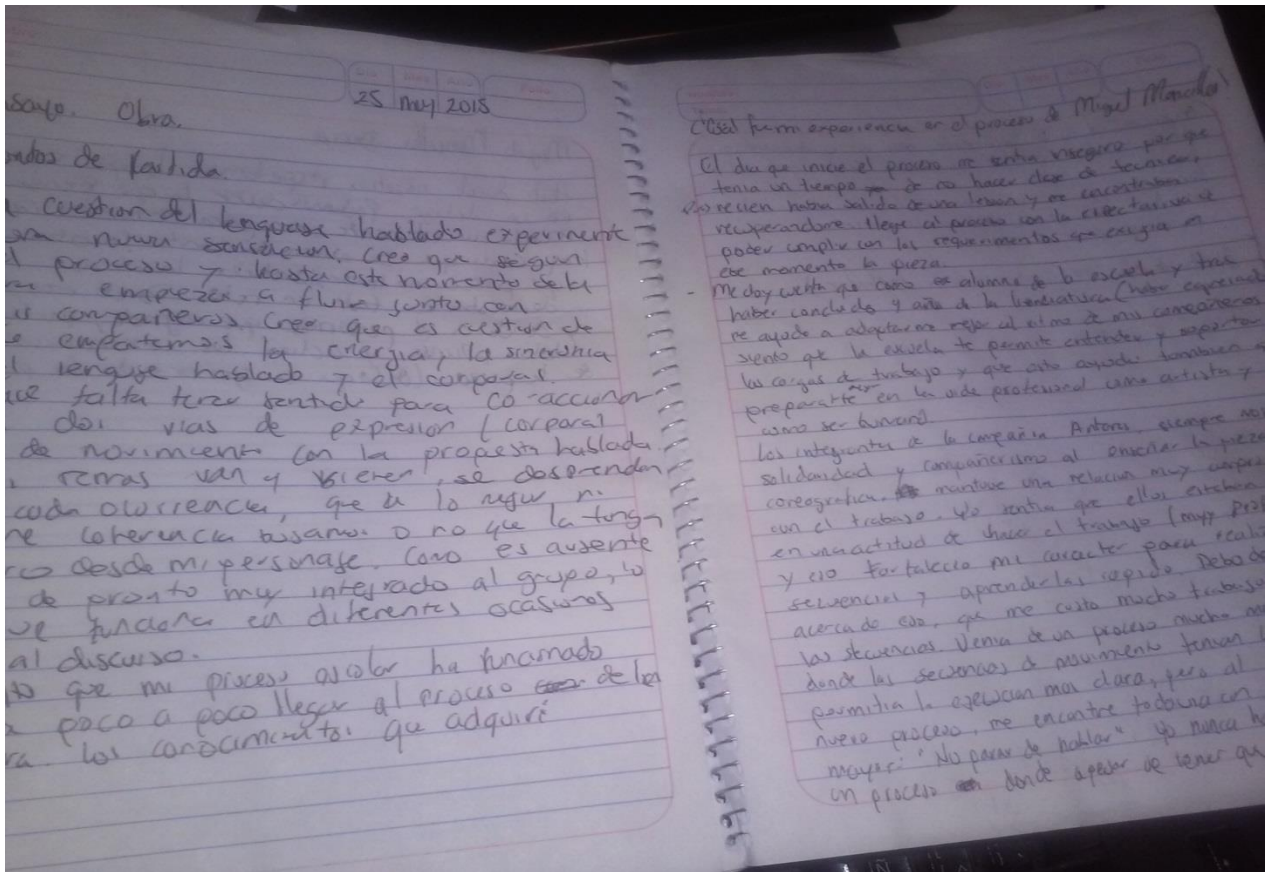 sayo. Obra.
25 may 2015
de Partida
cuestion del lenguaje hablado experimente
nueva sensacion, creo que segun
proceso y hasta este momento de la
empezar a fluir junto con
compañeros creo que es cuestion de
empatemos la energia, la sincronia
lenguaje hablado y el corporal.
falta tener sentido para co-accionar
dos vias de expresion (corporal
de movimiento con la propuesta hablada
temas van y vienen, se desprenden
cada ocurrencia, que a lo mejor ni
ne coherencia usamos o no que la tenga
desde mi personaje. Como es ausente
de pronto muy integrado al grupo, lo
ve funciona en diferentes ocasiones
al discurso.
que mi proceso escolar ha funcionado
poco a poco llegar al proceso de la
los conocimientos que adquiri
experiencia en el proceso de Miguel Mancillas
El dia que inicie el proceso me sentia inseguro por que
tenia un tiempo de no hacer clase de tecnica,
recien habia salido de una lesion y me encontraba
recuperandome llegue al proceso con la expectativa de
poder cumplir con los requerimientos que exigia en
ese momento la pieza.
- Me doy cuenta que como ex alumno de la escuela y tras
haber concluido 4 años de la licenciatura (haber
me ayudo a adaptarme mejor al ritmo de mis compañeros
siento que la escuela te permite entender y soportar
las cargas de trabajo y que esto ayuda tambien a
prepararte en la vida profesional como artista y
como ser humano.
Los integrantes de la compañia Antares siempre
solidaridad y compañerismo al enseñar la pieza
coreografica. mantuve una relacion muy
con el trabajo. Yo sentia que ellos estaban
en una actitud de hacer el trabajo (muy
y eso fortalecio mi caracter para
secuencias y aprenderlas rapido. Debo de
acerca de eso, que me costo mucho trabajo
las secuencias. Venia de un proceso mucho
donde las secuencias de movimiento tenian
permitia la ejecucion mas clara, pero al
nuevo proceso, me encontre todavia con
mayor: "No parar de hablar". Yo nunca
un proceso en donde apesar de tener que